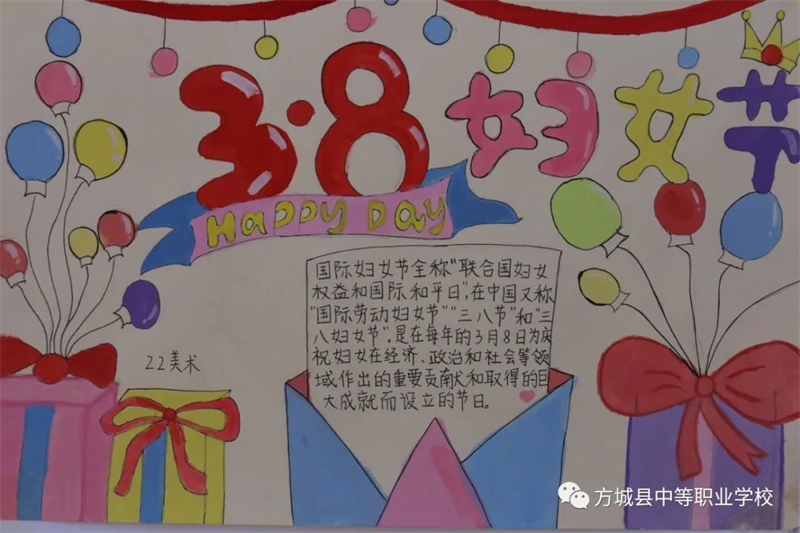 3·8妇女节
Happy Day
国际妇女节全称“联合国妇女
权益和国际和平日”,在中国又称
“国际劳动妇女节”“三八节”和“三
八妇女节”.是在每年的3月8日为庆
祝妇女在经济、政治和社会等领
域作出的重要贡献和取得的巨
大成就而设立的节日。
22美术
方城县中等职业学校